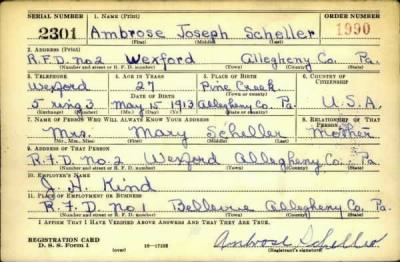 SERIAL NUMBER 1. NAME (Print) ORDER NUMBER
2301 Ambrose Joseph Scheller 1990
(First) (Middle) (Last)
2. ADDRESS (Print)
R.F.D. no 2 Wexford Allegheny Co. Pa.
(Number and street or R. F. D. number) (Town) (County) (State)
3. TELEPHONE 4. AGE IN YEARS 5. PLACE OF BIRTH 6. COUNTRY OF CITIZENSHIP
Wexford 27 Pine Creek
DATE OF BIRTH (Town or county)
5 ring 3 May 15 1913 Allegheny Co. Pa. U.S.A.
(Exchange) (Number) (Mo.) (Day) (Yr.) (State or country)
7. NAME OF PERSON WHO WILL ALWAYS KNOW YOUR ADDRESS 8. RELATIONSHIP OF THAT PERSON
Mrs. Mary Scheller Mother
(Mr., Mrs., Miss) (First) (Middle) (Last)
9. ADDRESS OF THAT PERSON
R.F.D. no. 2 Wexford Allegheny Co. Pa
(Number and street or R. F. D. number) (Town) (County) (State)
10. EMPLOYER'S NAME
J. H. Kind
11. PLACE OF EMPLOYMENT OR BUSINESS
R.F.D. no 1 Bellevue Allegheny Co. Pa.
(Number and street or R. F. D. number) (Town) (County) (State)
I AFFIRM THAT I HAVE VERIFIED ABOVE ANSWERS AND THAT THEY ARE TRUE.
REGISTRATION CARD
D. S. S. Form 1 (over) Ambrose Scheller
(Registrant's signature)